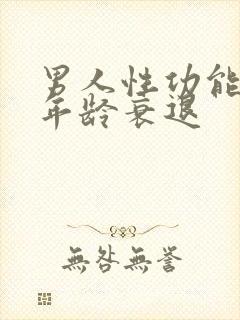 男人性功能
年龄衰退
無咎無譽